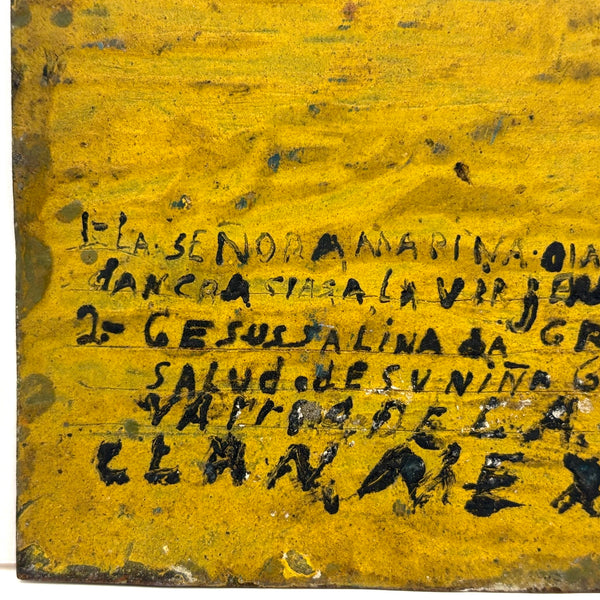 1-LA.SEÑORA MARINA.DIA
dANCRA SIASA,LA VIRJEN
2.- GESUS SALINA da GR
SALUd.dE SU NIÑA G
CLAN MEX